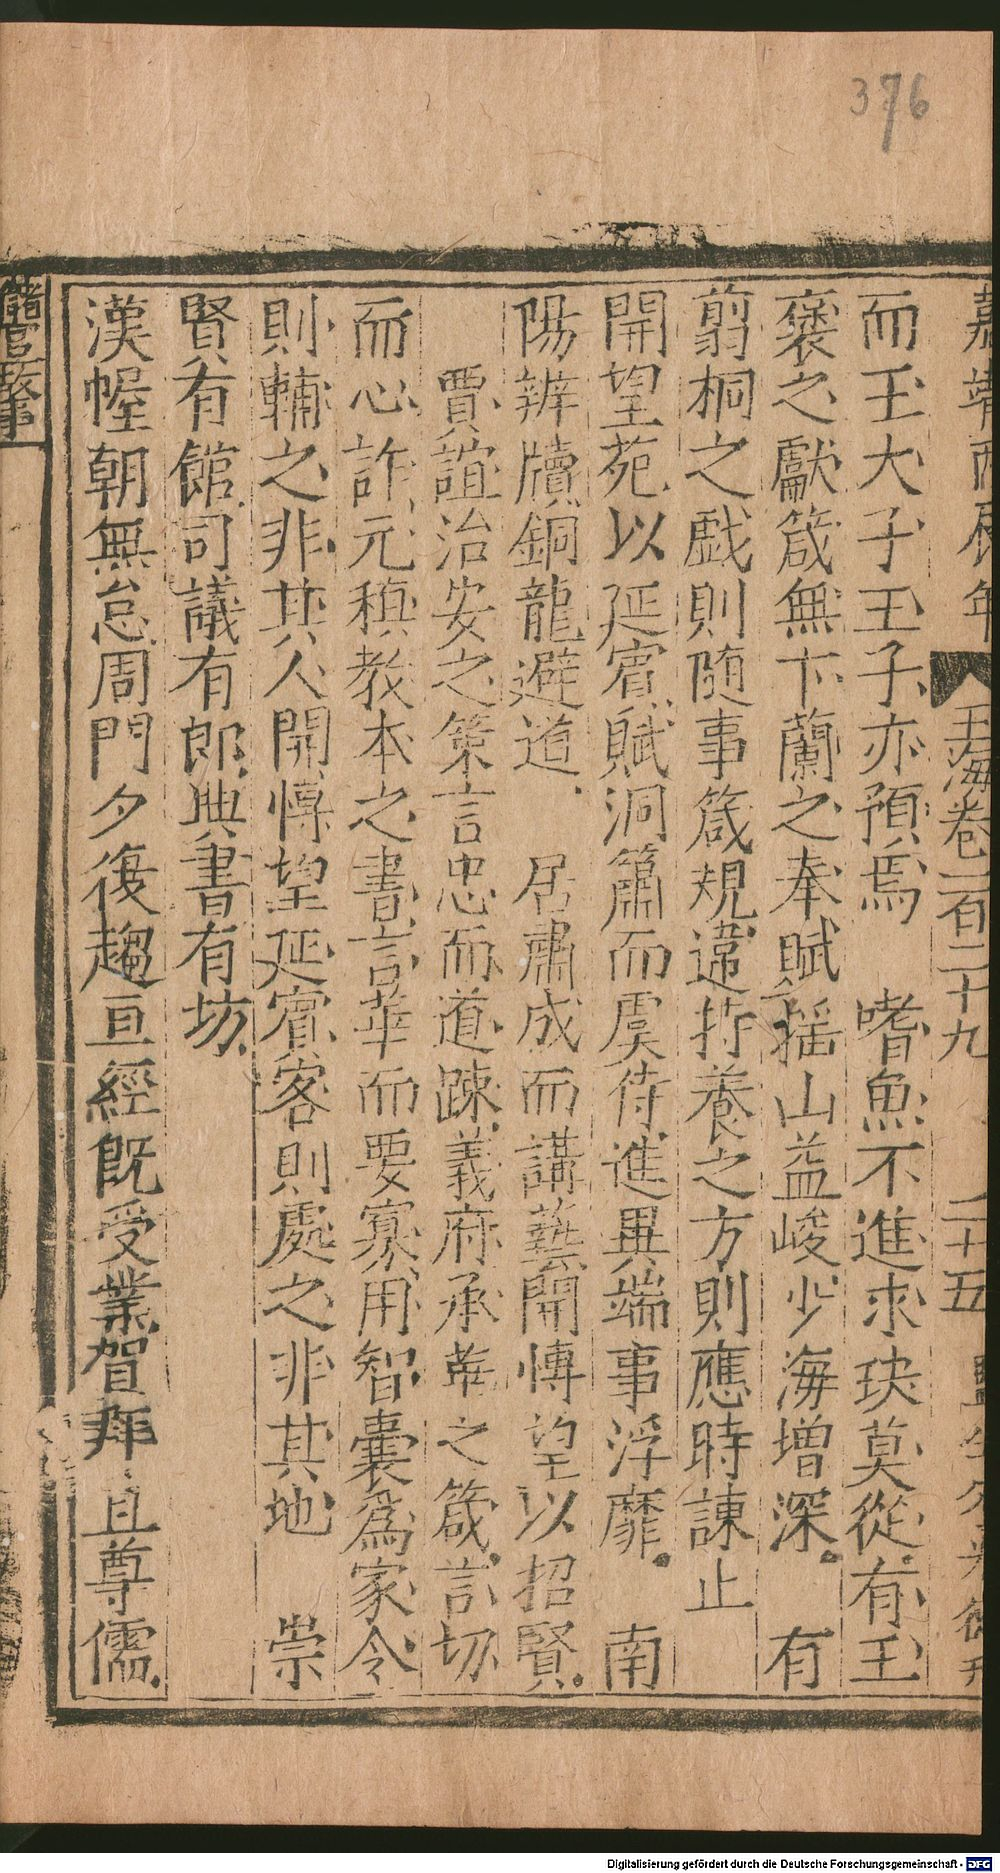 376
嘉靖丙辰年
玉海卷一百二十九
二十五
而王大子王子亦預焉　嗜魚不進求玦莫從有王
褒之獻箴無卞蘭之奉賦　搖山益峻少海增深　有
翦桐之戲則隨事箴規違持養之方則應時諫止
開望苑以延賓賦洞簫而虞侍進異端事浮靡　南
陽辨牘銅龍避道　居肅成而講藝開博望以招賢
賈誼治安之策言忠而道踈義府承華之箴言切
而心詐元稹教本之書言華而要寡用智囊爲家令
則輔之非其人開博望延賓客則處之非其地　崇
賢有館司議有郎典書有坊
漢幄朝無怠周門夕復趨亘經旣受業賀拜且尊儒
儲官故事
Digitalisierung gefördert durch die Deutsche Forschungsgemeinschaft - DFG